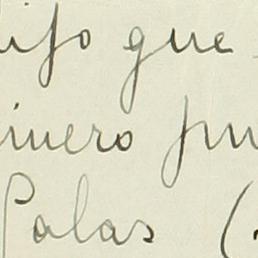 ijo que
inero pu
Palas (